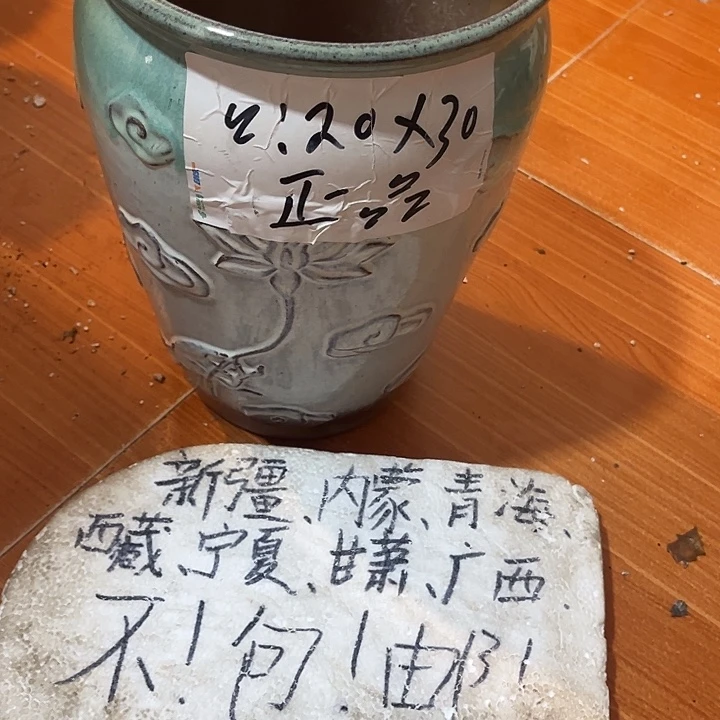 20X30
正品
新疆、内蒙、青海、
西藏、宁夏、甘萧、广西.
不!包!邮!